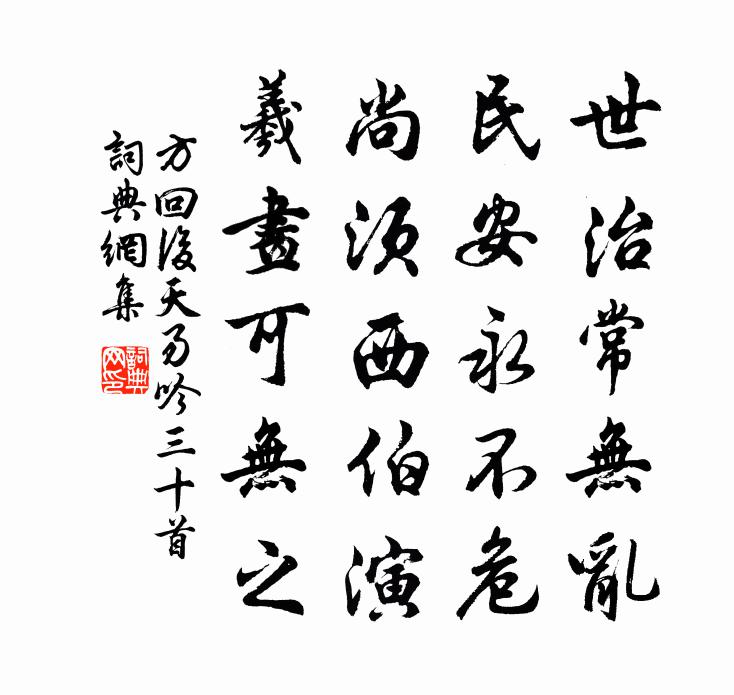 世治常無亂
民安永不危
尚須西伯演
羲畫可無之
方回後天易吟三十首
詞典網集
詞典网印